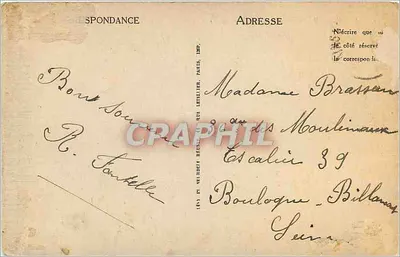 SPONDANCE
ADRESSE
N'écrire que
le côté réservé
la correspon
Bon souvenir
R. Fontelle
Madame Brassan
des Moulineaux
Escalier 39
Boulogne-Billanc
Seine
CPAPHIL